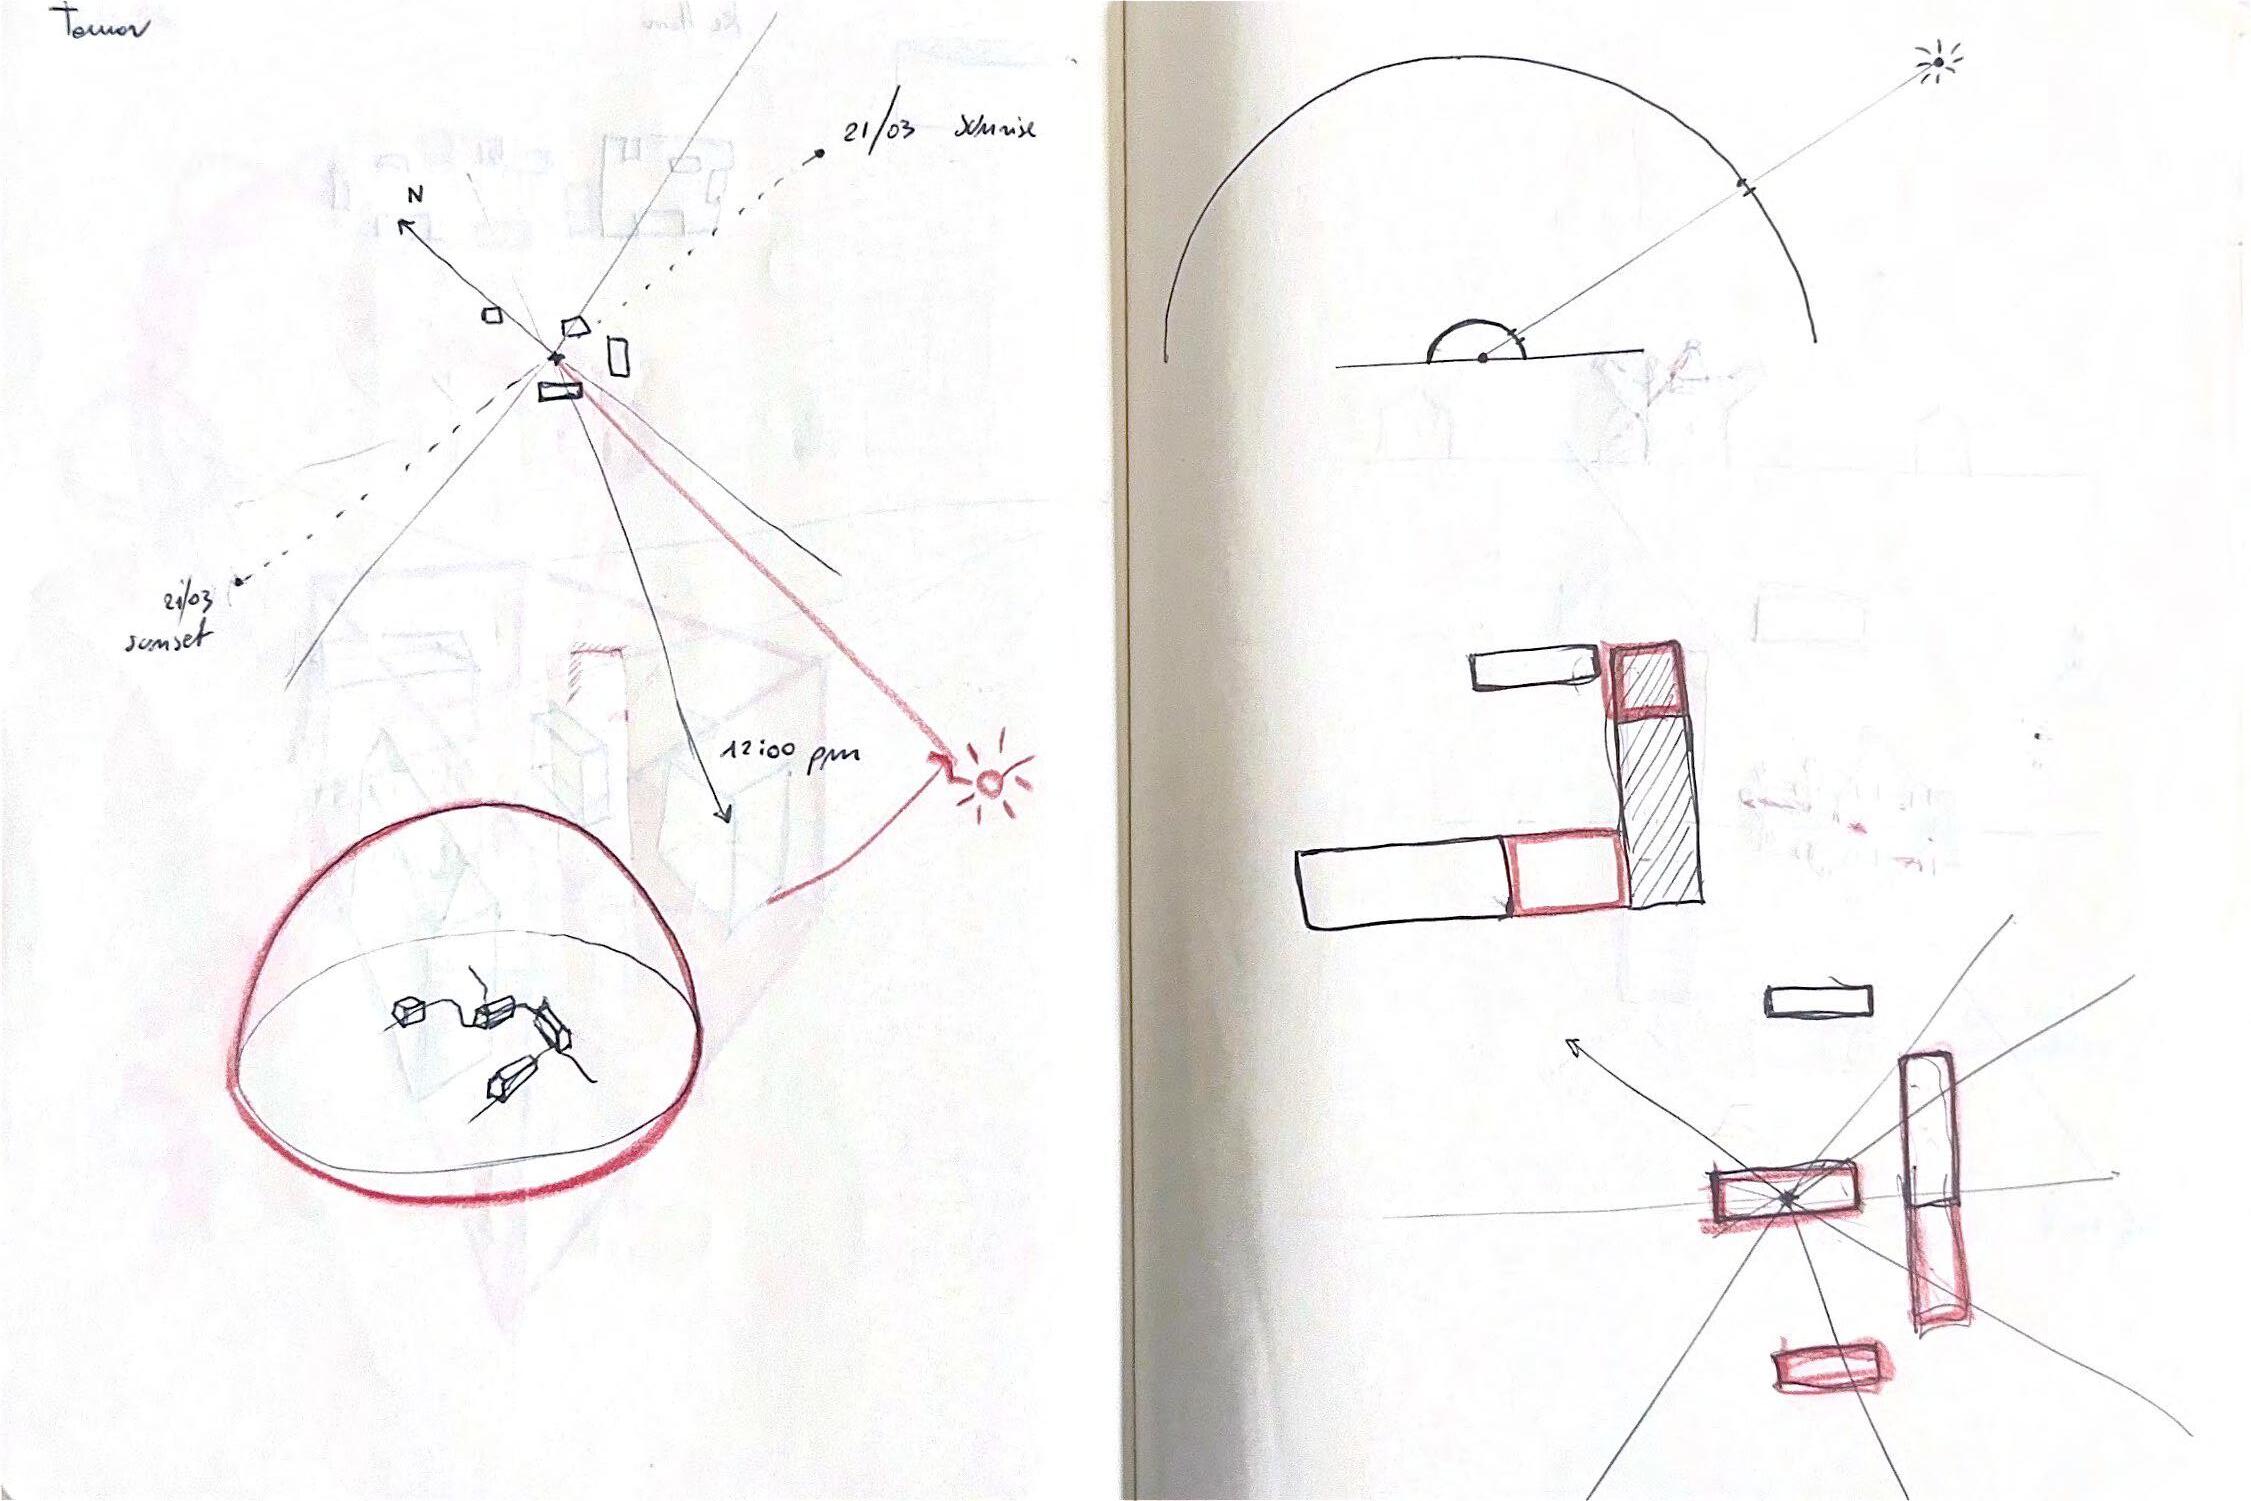 N
21/03 sunrise
21/03
sunset
12:00 pm